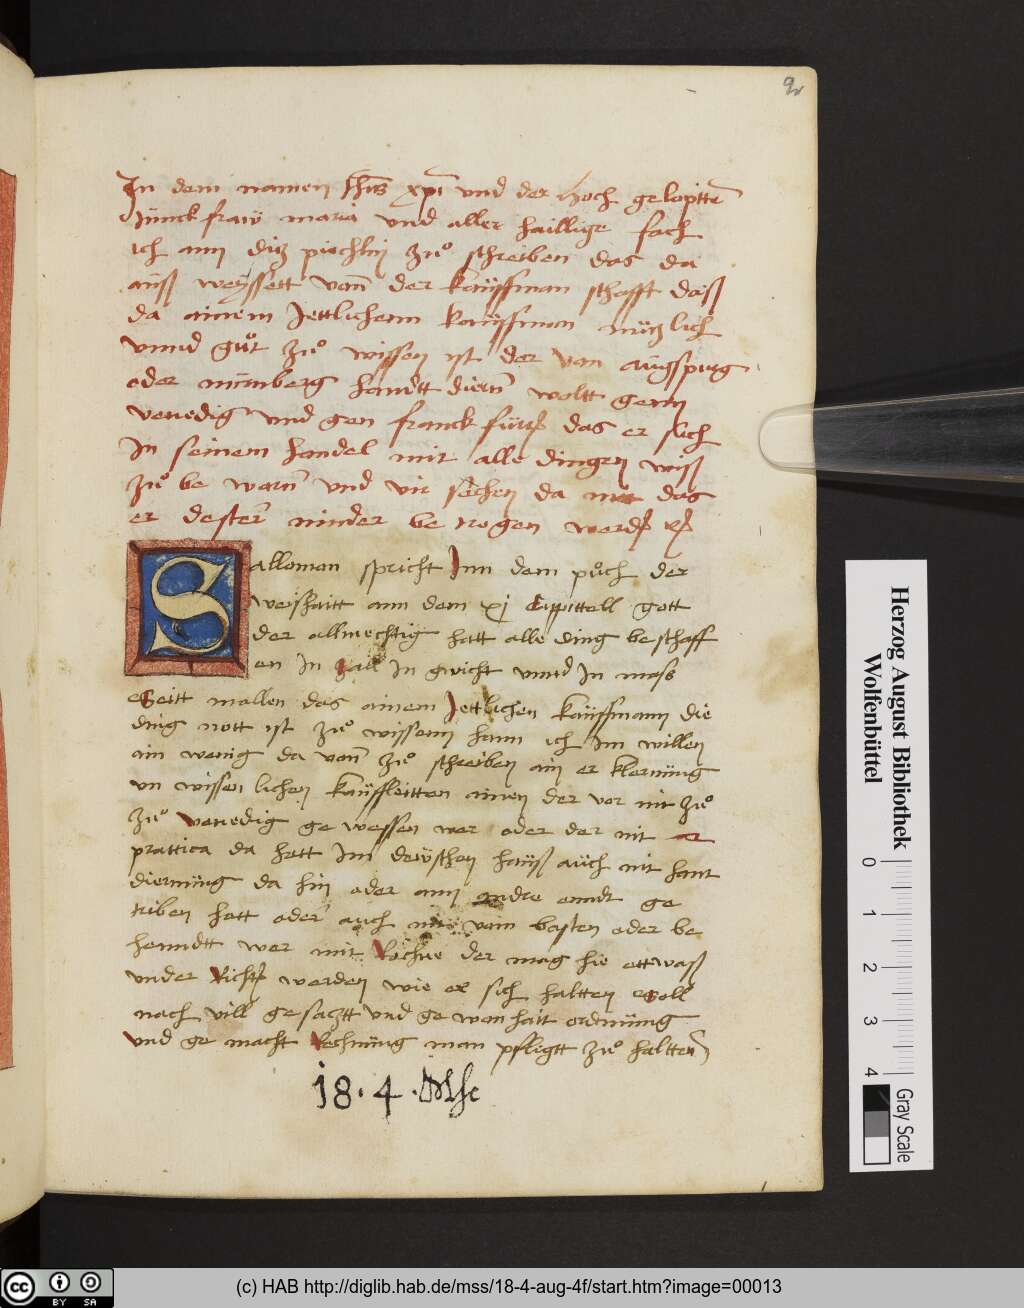 9r
In dem namen Jhūs xp̄i vnd der hoch geloptten̄
Junckfraw maria vnd aller haillige fach
ich ann diz piechlin zuͦ schreiben das da
aüß weyssett von̄ der kaüffman schafft daß
da ainem Jettlichenn kaüffman nüzlich
vnnd guͦt zuͦ wissen ist der van aügspurg
oder nürnberg handtt diern̄ woltt genn
venedig vnd gen franckfürt das er sich
In seinem handel mit alle dingen wiß
zuͦ be warn̄ vnd vir sechen da mit das
er dester̄ minder be trogen werd
Salloman spricht Inn dem puͦch der
weishaitt ann dem xj Cappittell gott
der allmechtig hatt alle ding be schaff
en In zall In gwicht vnnd In mass
Seitt mallen das ainem Jettlichen kaüffmann die
ding nott ist zuͦ wissenn hann ich Im willen
ain wenig da von̄ zuͦ schreiben ain er klernüng
vn wissen lichen kaüffleitten ainen der vor nit zuͦ
zuͦ venedig ge wessen wer oder der nit
prattica da hett Im deüschen haüß aüch nit hant
diernüng da hin oder ann andre enndt ge
triben hett oder auch nit vom basten oder be
henndtt wer mit Rechne der mag hie ettwaß
vnder Richtt werden wie er sich haltten Soll
nach vill gesaztt vnd ge wonhait ordnüng
vnd ge macht Rechnüng man pfligtt zuͦ haltten
18.4.Msc
Herzog August Bibliothek
Wolfenbüttel
0 1 2 3 4
Gray Scale
cc BY SA
(c) HAB http://diglib.hab.de/mss/18-4-aug-4f/start.htm?image=00013